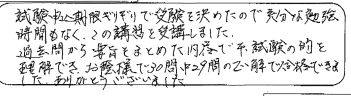 試験申込期限ギリギリで受験を決めたので充分な勉強
時間もなく、この講習を受講しました。
過去問から要旨をまとめた内容で、試験の的を
理解でき、お蔭様で30問中29問の正解で合格できま
した。ありがとうございました